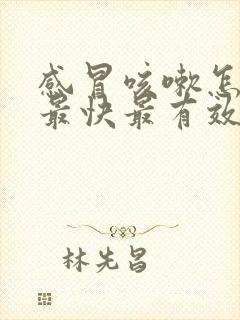 感冒咳嗽怎
最快最有效
林先昌